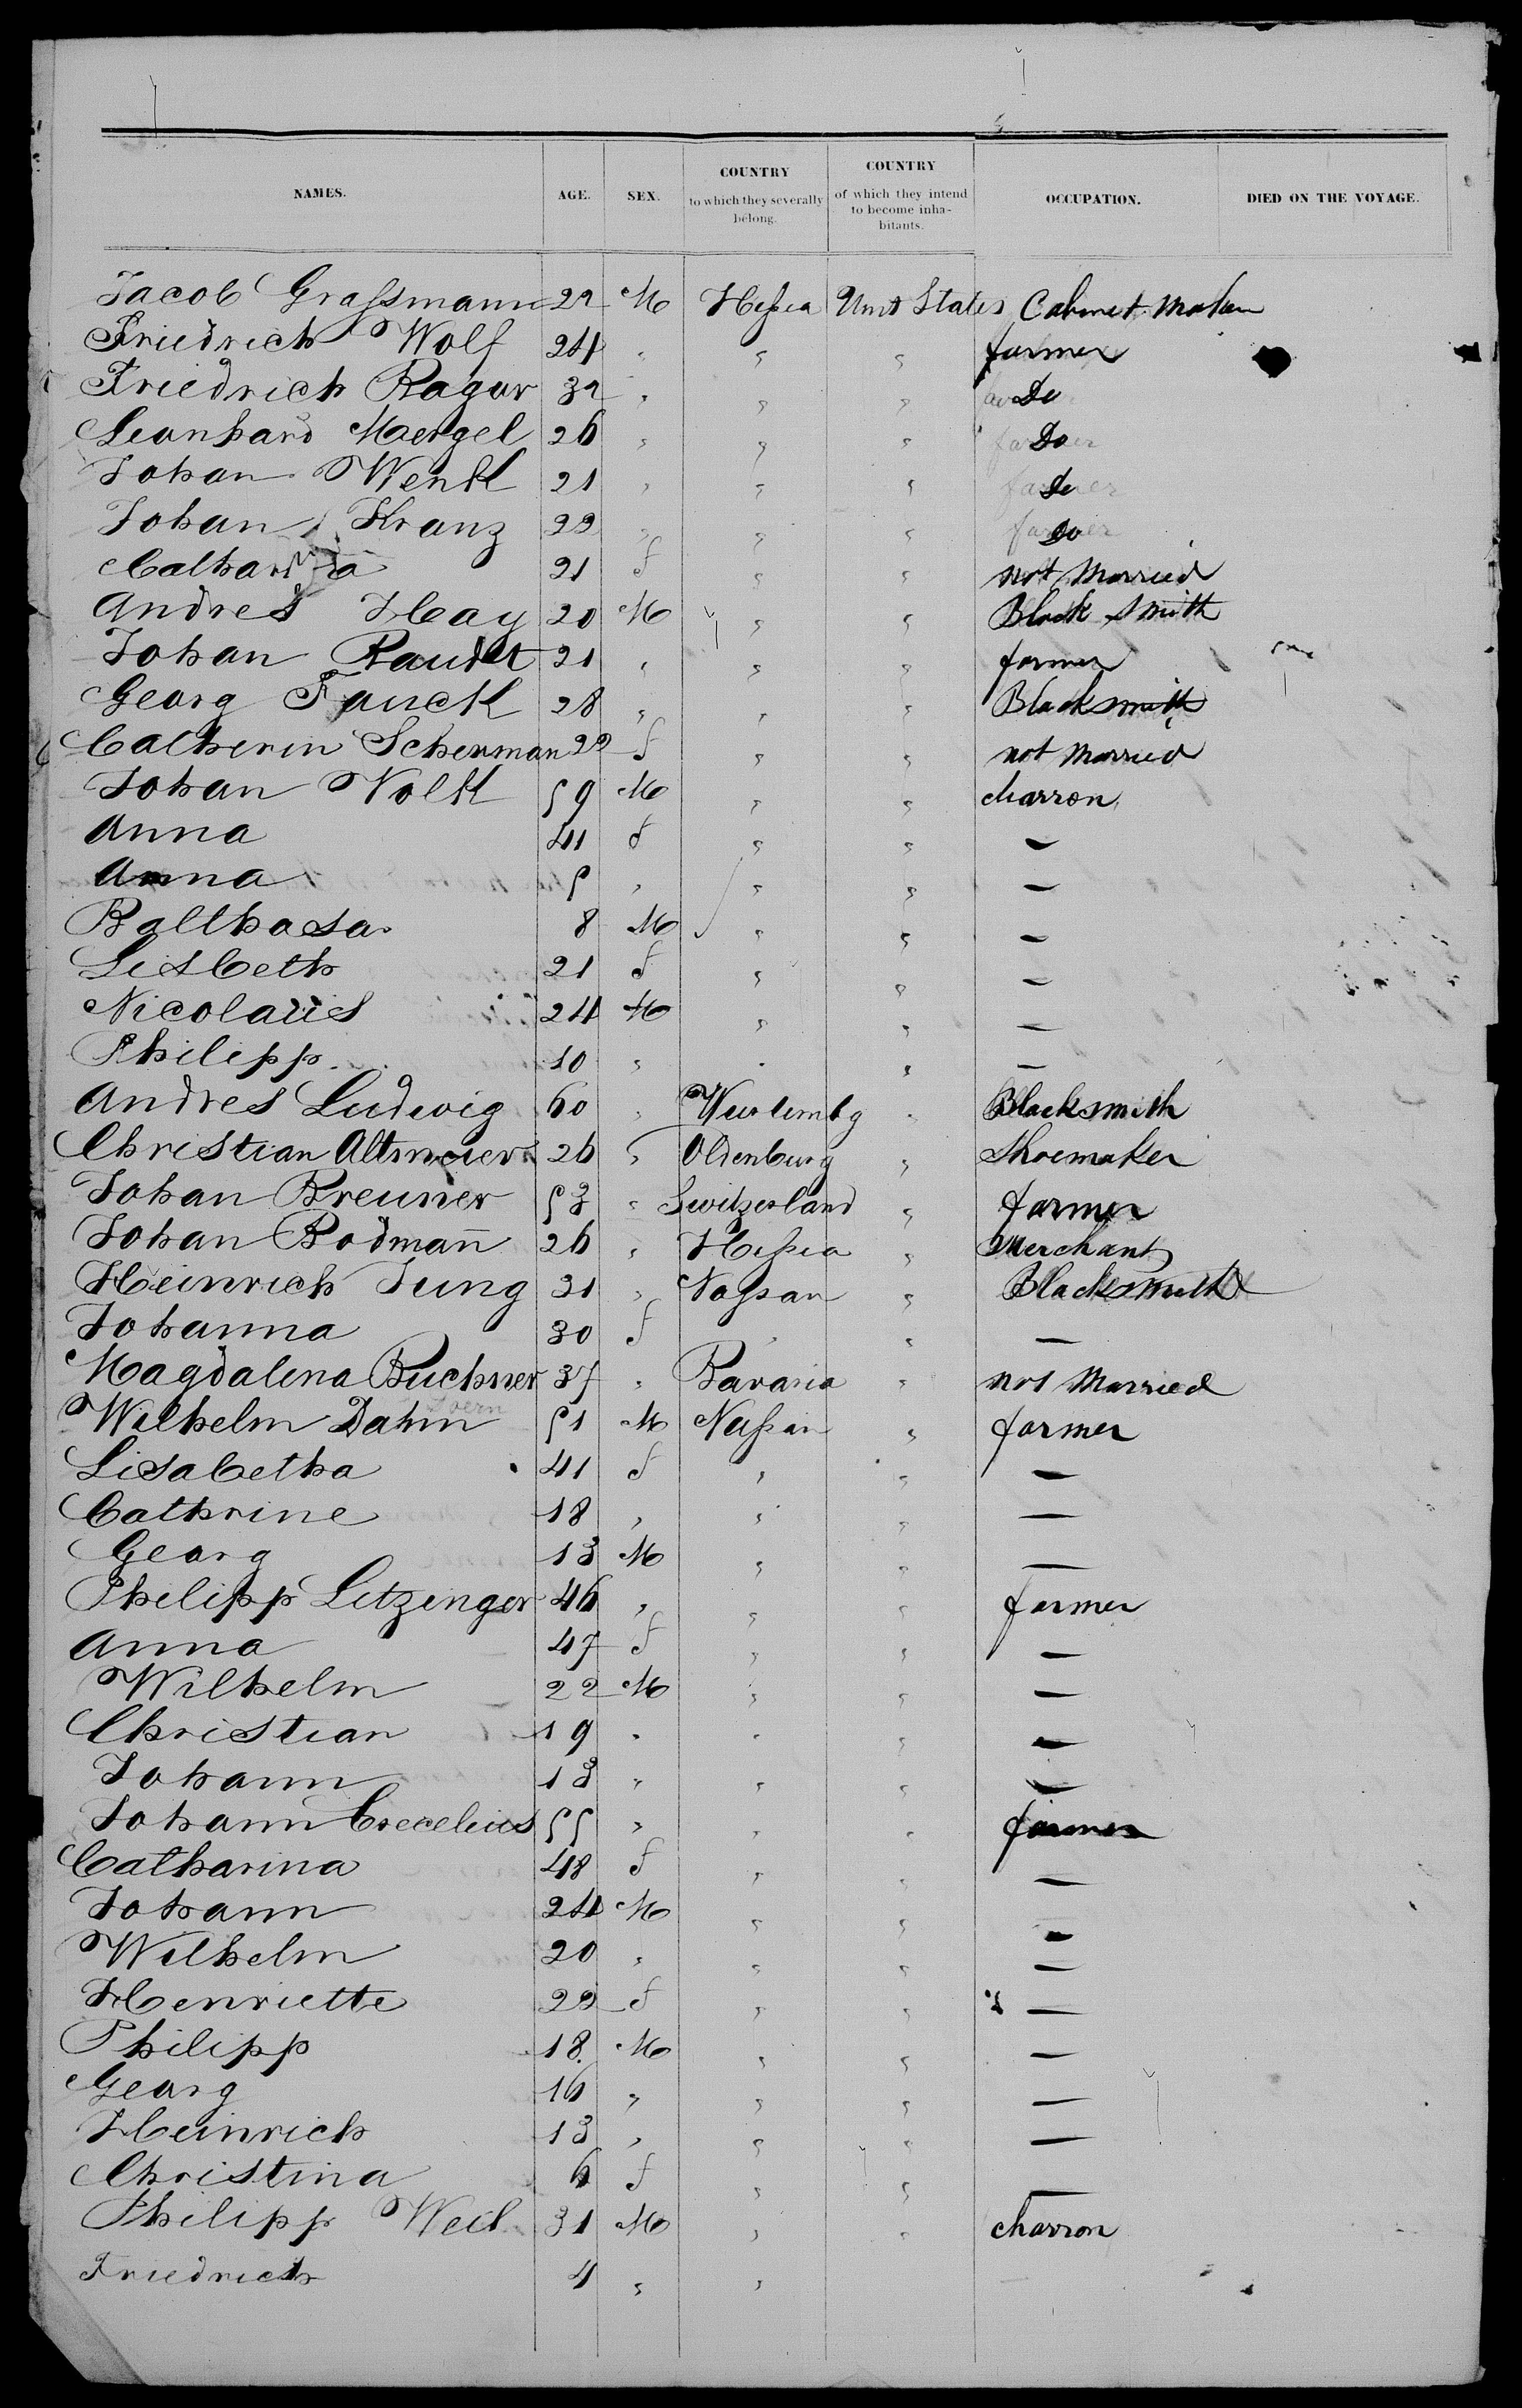 NAMES. AGE. SEX. COUNTRY to which they severally belong. COUNTRY of which they intend to become inhabitants. OCCUPATION. DIED ON THE VOYAGE.
Jacob Graſsmann 22 M Heſsia Unit States Cabinet Maker
Friedrich Wolf 24 " " " farmer
Friedrich Ragar 32 " " " Do
Leonhard Mergel 26 " " " Do
Johan Wenk 21 " " " Do
Johan Kranz 22 " " " Do
Catharina 21 f " " not Married
Andres Hay 20 M " " Black Smith
Johan Raudt 21 " " " farmer
Georg Fauck 28 " " " Blacksmith
Catherin Scherman 22 f " " not Married
Johan Volk 59 M " " charron
Anna 41 f " " —
Anna 5 " " " —
Balthasar 8 M " " —
Lisbeth 21 f " " —
Nicolaüs 24 M " " —
Philipp 10 " " " —
Andres Ludwig 60 " Wurtembg " Blacksmith
Christian Altmeier 26 " Oldenburg " Shoemaker
Johan Breuner 53 " Switzerland " farmer
Johan Rodman̄ 26 " Heſsia " Merchant
Heinrich Jung 31 " Naſsau " Blacksmith
Johanna 30 f " " —
Magdalena Buchner 37 " Bavaria " not Married
Wilhelm Dahm 51 M Naſsau " farmer
Lisabetha 41 f " " —
Cathrine 18 " " " —
Georg 13 M " " —
Philipp Litzinger 46 " " " farmer
Anna 47 f " " —
Wilhelm 22 M " " —
Christian 19 " " " —
Johann 13 " " " —
Johann Crecelius 55 " " " farmer
Catharina 48 f " " —
Johann 24 M " " —
Wilhelm 20 " " " —
Henriette 22 f " " —
Philipp 18 M " " —
Georg 16 " " " —
Heinrich 13 " " " —
Christina 6 f " " —
Philipp Weil 31 M " " charron
Friedrich 4 " "